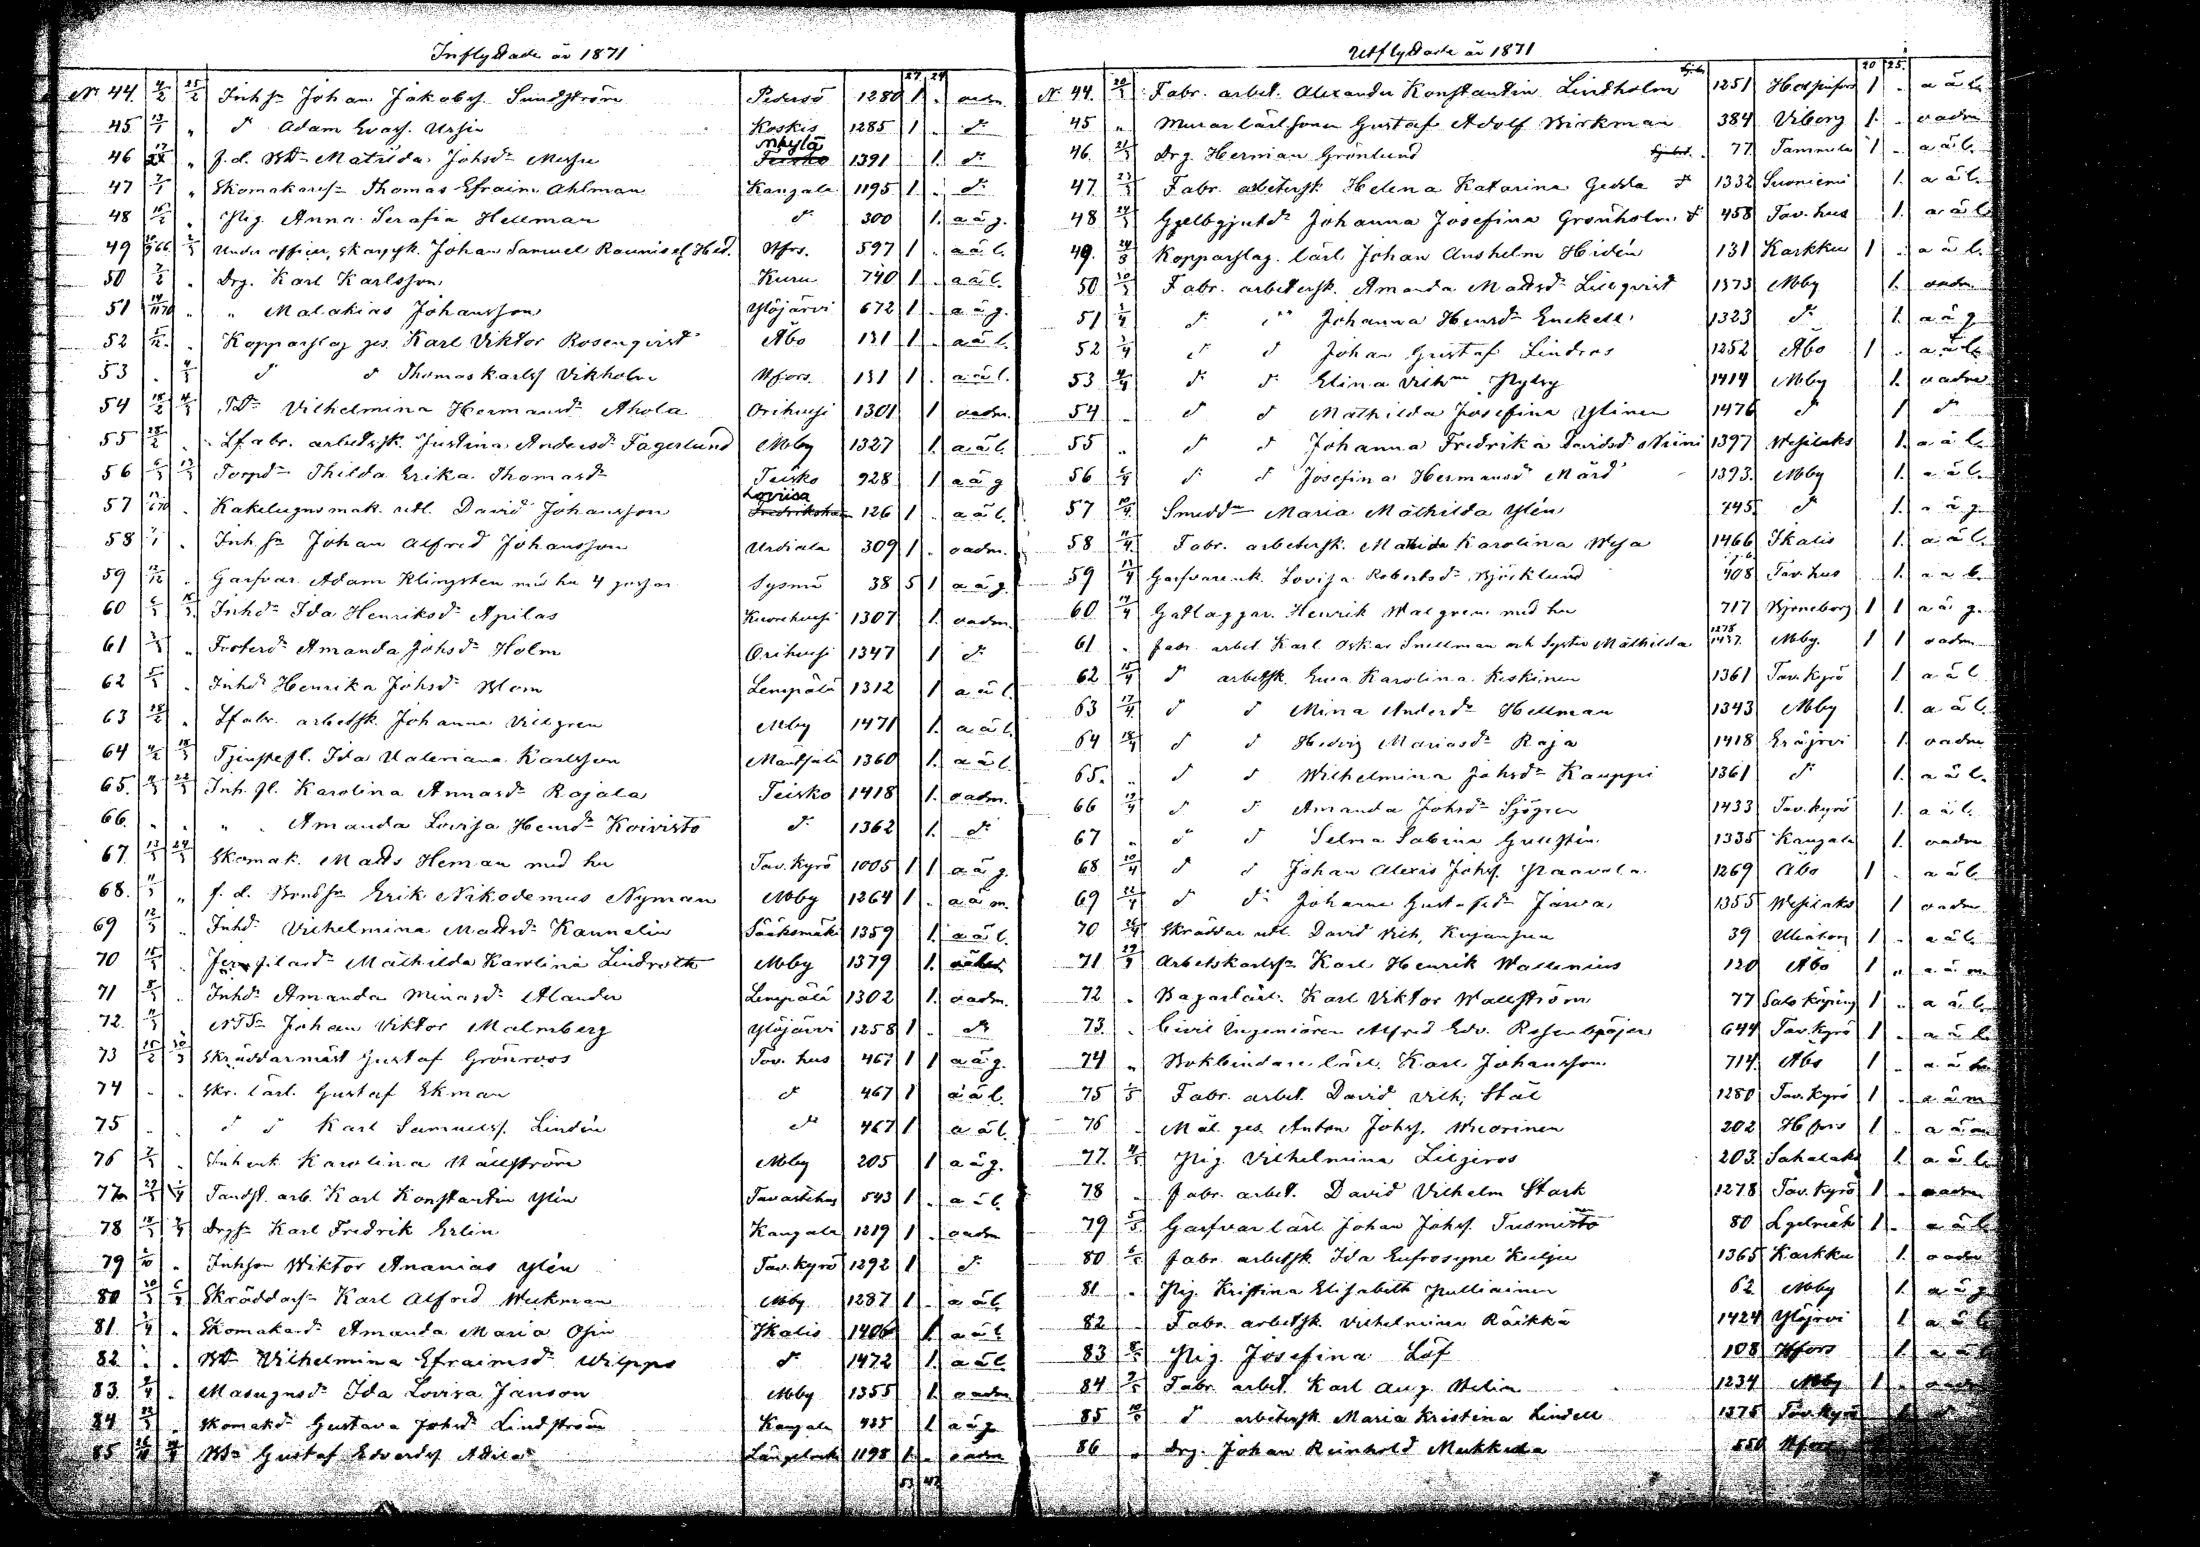 Inflyttade år 1871
27 24
No 44. 4/2 25/2 Inhsn Johan Jakobss. Sundström Pedersö 1280 1 . oadm.
45 13/1 " do Adam Evass. Ursin Koskis 1285 1 . do
46 " f.d. Matilda Johsdr Messu Teisko 1391 1. do
47 7/1 " Skomakaresn Thomas Efraim Ahlman Kangala 1195 1 . do
48 15/2 " Pig. Anna Serafia Hellman do 300 1. a ä g.
49 Under officer, skarpsk. Johan Samuel Raunis Hfors. 597 1 . a ä l.
50 7/2 . Drg. Karl Karlsson Kuru 740 1 . a ä l.
51 . " Malakias Johansson Ylöjärvi 672 1 . a ä g.
52 . Kopparslag. ges. Karl Viktor Rosenqvist Åbo 131 1 . a ä l.
53 . 4/3 do do Thomas Karlss Vikholm Hfors. 131 1 . a ä l.
54 18/2 4/3 Tdr Vilhelmina Hermansdr Ahola Orihvesi 1301 1 oadm.
55 28/2 . Lfabr. arbetssk. Justina Andersdr Fagerlund Mby 1327 1. a ä l.
56 6/3 13/3 Torpdr Thilda Erika Thomasdr Teisko 928 1 a ä g
57 . Kakelugnsmak. utl. David Johansson Loviisa 126 1 . a ä l.
58 7/1 . Inhsn Johan Alfred Johansson Urdiala 309 1 . oadm.
59 12/12 . Garfvar. Adam Klingsten med hu 4 gossar Sysmä 38 5 1 a ä g.
60 6/3 15/3 Inhdr Ida Henriksdr Apilas Kuorehvesi 1307 1. oadm.
61 3/3 " Trotesdr Amanda Johsdr Holm Orihvesi 1347 1 do
62 5/3 . Inhdr Henrika Johsdr Blom Lempälä 1312 1 a ä l.
63 28/2 " Lfabr. arbetssk. Johanna Villgren Mby 1471 1. a ä l.
64 4/2 18/3 Tjenstefl. Ida Valeriana Karlsson Mäntsälä 1360 1. a ä l.
65. 4/3 22/3 Inh.fl. Karolina Annasdr Rajala Teisko 1418 1. oadm.
66. " " " " Amanda Lovisa Henrdr Koivisto do 1362 1. do
67. 13/3 24/3 Skomak. Matts Heman med hu Tav.Kyrö 1005 1 1 a ä g.
68. 11/3 " f.d. Bondsn Erik Nikodemus Nyman Mby 1264 1 . a ä m.
69 12/3 . Inhdr Vilhelmina Mattsdr Kannelin Sääksmäki 1359 1. a ä l.
70 15/3 . Mathilda Karolina Lindroth Mby 1379 1.
71 8/3 . Inhdr Amanda Minasdr Alander Lempälä 1302 1. oadm.
72. 11/3 " Johan Viktor Malmberg Ylöjärvi 1258 1 . do
73 15/2 30/3 Skräddarmäst Gustaf Grönroos Tav. hus 467 1 1 a ä g.
74 . . Skr. lärl. Gustaf Ekman do 467 1 a ä l.
75 . . do do Karl Samuelss. Lindén do 467 1 a ä l.
76 3/3 . Inhenk Karolina Vällström Mby 205 1 a ä g.
77 Tandst. arb. Karl Konstantin Ylén Tavastehus 543 1 . a ä l.
78 Drgsn Karl Fredrik Erlin Kangala 1219 1 . oadm
79 . Inhson Wiktor Ananias Ylén Tav.kyrö 1292 1 do
80 30/3 6/4 Skräddarsn Karl Alfred Weckman Mby 1287 1 . a ä l.
81. 3/4 " Skomakaredr Amanda Maria Osin Ikalis 1406 1. a ä l.
82 . . Vilhelmina Efraimsdr Wilppo do 1472 1. a ä l
83. 3/4 . Masugnsdr Ida Lovisa Janson Mby 1355 1. oadm
84. Skomakdr Gustava Johsdr Lindström Kangala 425 1 a ä g
85 Gustaf Edvardss Attila Längelmäki 1198 1. . oadm
53 42
Utflyttade år 1871
20 25.
No 44. 20/3 Fabr. arbet. Alexander Konstantin Lindholm 1251 Helsinfors 1 . a ä l.
45 " Murarlärl sonen Gustaf Adolf Birkman 384 Viborg 1. . oadm
46. 21/3 Drg. Herman Grönlund 77 Tammela 1 . a ä l.
47. 23/3 Fabr. arbetersk. Helena Katarina Gedda do 1332 Suoniemi 1. a ä l.
48 24/3 Gjelbgjutdr Johanna Josefina Grönholm do 458 Tav. hus 1. a ä l.
49. 24/3 Kopparslag. lärl. Johan Anshelm Hidén 131 Karkku 1 . a ä l.
50 30/3 Fabr. arbetersk. Amanda Mattsdr Lillqvist 1373 Mby 1. oadm
51 1/4 do " Johanna Henrdr Enckell 1323 do 1. a ä g
52 3/4 do do Johan Gustaf Lindros 1252 Åbo 1 . a ä l.
53 4/4 do do Elina Vilhm Nyby 1414 Mby 1. oadm
54 .. do do Mathilda Josefina Ylinen 1476 do 1 do
55 " do do Johanna Fredrika Davidsdr Niini 1397 Wesilaks 1. a ä l.
56 6/4 do do Josefina Hermansdr Mård 1393. Mby 1. a ä l.
57 10/4 Smeddr Maria Mathilda Ylén 745. do 1. a ä g.
58 11/4 Fabr. arbetersk. Matilda Karolina Wesa 1466 Ikalis 1. a ä l.
59 13/4 Garfvarenk. Lovisa Robertsdr Björklund 408 Tav.hus 1. a ä l.
60 14/4 Gatläggar. Henrik Walgren med hu 717 Björneborg 1 1 a ä g.
61 . Fabr. arbet. Karl Oskar Snellman och syster Mathilda 1278 1437. Mby. 1 1 oadm
62 15/4 do arbetsk. Eva Karolina Keskinen 1361 Tav.Kyrö 1 a ä l
63 17/4 do do Mina Andersdr Hellman 1343 Mby 1. a ä l.
64 18/4 do do Hedvig Mariasdr Raja 1418 Eräjrvi 1. oadm
65. .. do do Wilhelmina Johsdr Kauppi 1361 do 1. a ä l.
66 19/4 do do Amanda Johsdr Sjögren 1433 Tav.kyrö 1. a ä l.
67 " do do Selma Sabina Gullstén 1335 Kangala 1. oadm
68 20/4 do do Johan Alexis Johss. Paavola 1269 Åbo 1 . a ä l.
69 22/4 do do Johanna Gustafsdr Järva 1355 Wesilaks 1 oadm
70 26/4 Skräddar utl. David Vilh. Kujanpää 39 Uleåborg 1 . a ä l.
71 29/4 Arbetskarlssn Karl Henrik Wallenius 120 Åbo 1 " a ä m
72 " Bagarlärl. Karl Viktor Wallström 77 Salo köping 1 .. a ä l.
73. . Civil Ingeniören Alfred Edv. 644 Tav.Kyrö 1 . a ä l.
74 " Bokbindare lärl. Karl Johansson 714. Åbo 1 . a ä
75 1/5 Fabr. arbet. David Vilh. Stål 1280 Tav.Kyrö 1 . a ä m
76 . Mål. ges. Anton Johss. Wuorinen 202 Hfors 1 . a ä m
77. 4/5 Pig. Vilhelmina Liljeros 203. Sahalaks 1. a ä l.
78 " Fabr. arbet. David Vilhelm Stark 1278 Tav.Kyrö 1 " oadm
79 5/5 Garfvar lärl. Johan Johss. Tuomisto 80 Lgelmäki 1 . a ä l
80 6/5 Fabr. arbetsk. Ida Eufrosyne Kulju 1365 Karkku 1. oadm
81 " Pig. Kristina Elisabeth Pulliainen 62 Mby 1. a ä g
82 " Fabr. arbetsk. Vilhelmina Räikkä 1424 Ylöjrvi 1. a ä l
83 8/5 Pig. Josefina Löf 108 Hfors 1. a ä l
84 9/5 Fabr. arbet. Karl Aug. Melin 1234 Mby 1 . oadm
85 10/5 do arbetersk. Maria Kristina Lindell 1375 Tav.kyrö 1. do
86 " Drg. Johan Reinhold Mukkula 550 Hfors